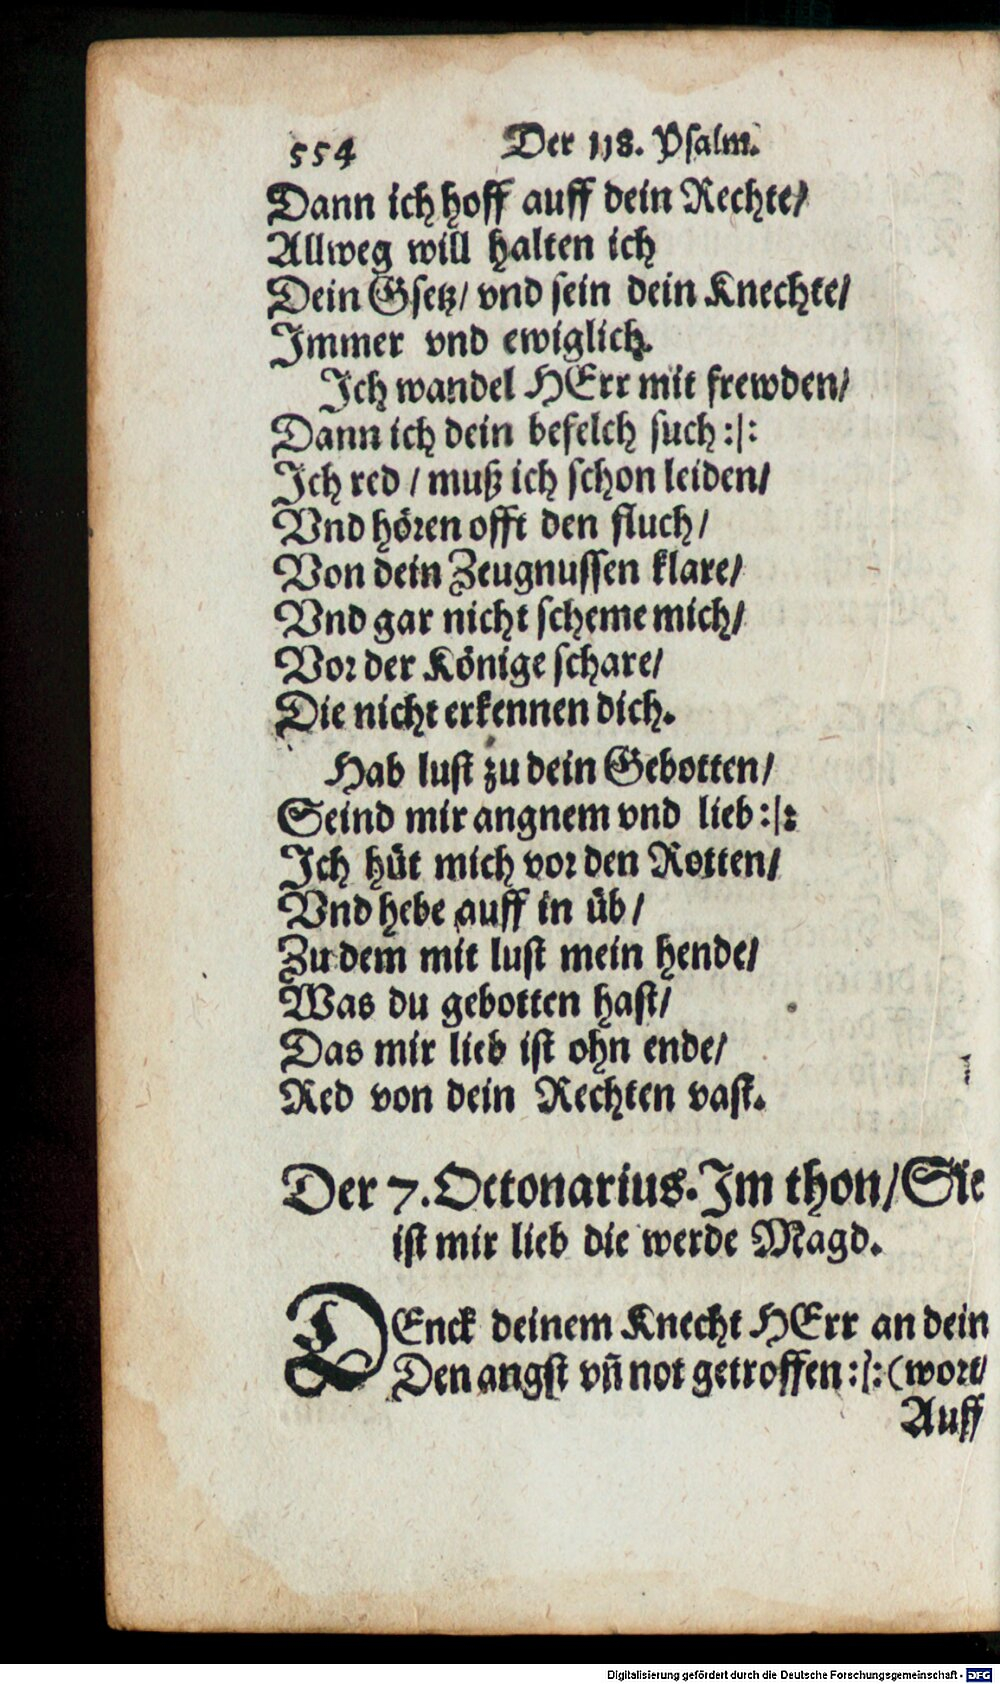 554 Der 118. Psalm.
Dann ich hoff auff dein Rechte/
Allweg will halten ich
Dein Gsetz/ vnd sein dein Knechte/
Immer vnd ewiglich.
Ich wandel HErr mit frewden/
Dann ich dein befelch such :|:
Ich red / muß ich schon leiden/
Vnd hören offt den fluch/
Von dein Zeugnussen klare/
Vnd gar nicht scheme mich/
Vor der Könige schare/
Die nicht erkennen dich.
Hab lust zu dein Gebotten/
Seind mir angnem vnd lieb :|:
Ich hüt mich vor den Rotten/
Vnd hebe auff in üb/
Zu dem mit lust mein hende/
Was du gebotten hast/
Das mir lieb ist ohn ende/
Red von dein Rechten vast.
Der 7. Octonarius. Im thon/ Sie
ist mir lieb die werde Magd.
DEnck deinem Knecht HErr an dein
Den angst vñ not getroffen :|: (wort/
Auff
Digitalisierung gefördert durch die Deutsche Forschungsgemeinschaft - DFG